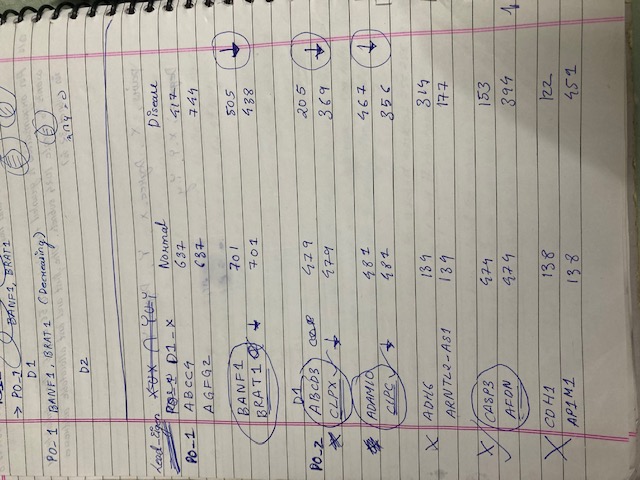 → PO-1 BANF1, BRAT1
D1
PO-1 BANF1, BRAT1 (Decreasing)
D2
Lead-Eigen XUX ∩ YUY
D1-X Normal Disease
PO-1 ABCC4 637 417
AGFG2 637 744
BANF1 701 505 ↓
BRAT1 ↓ 701 438
D1
PO-2 ABCD3 479 205 ↓
CLPX ✓ ↓ 479 369
ADAM10 481 467 ↓
CLPC ✓ ↓ 481 356
X ADH6 134 314
ARNTL2-AS1 134 177
X CASP3 474 153
✓ AFDN 474 394
X CDH1 138 122
AP1M1 138 451